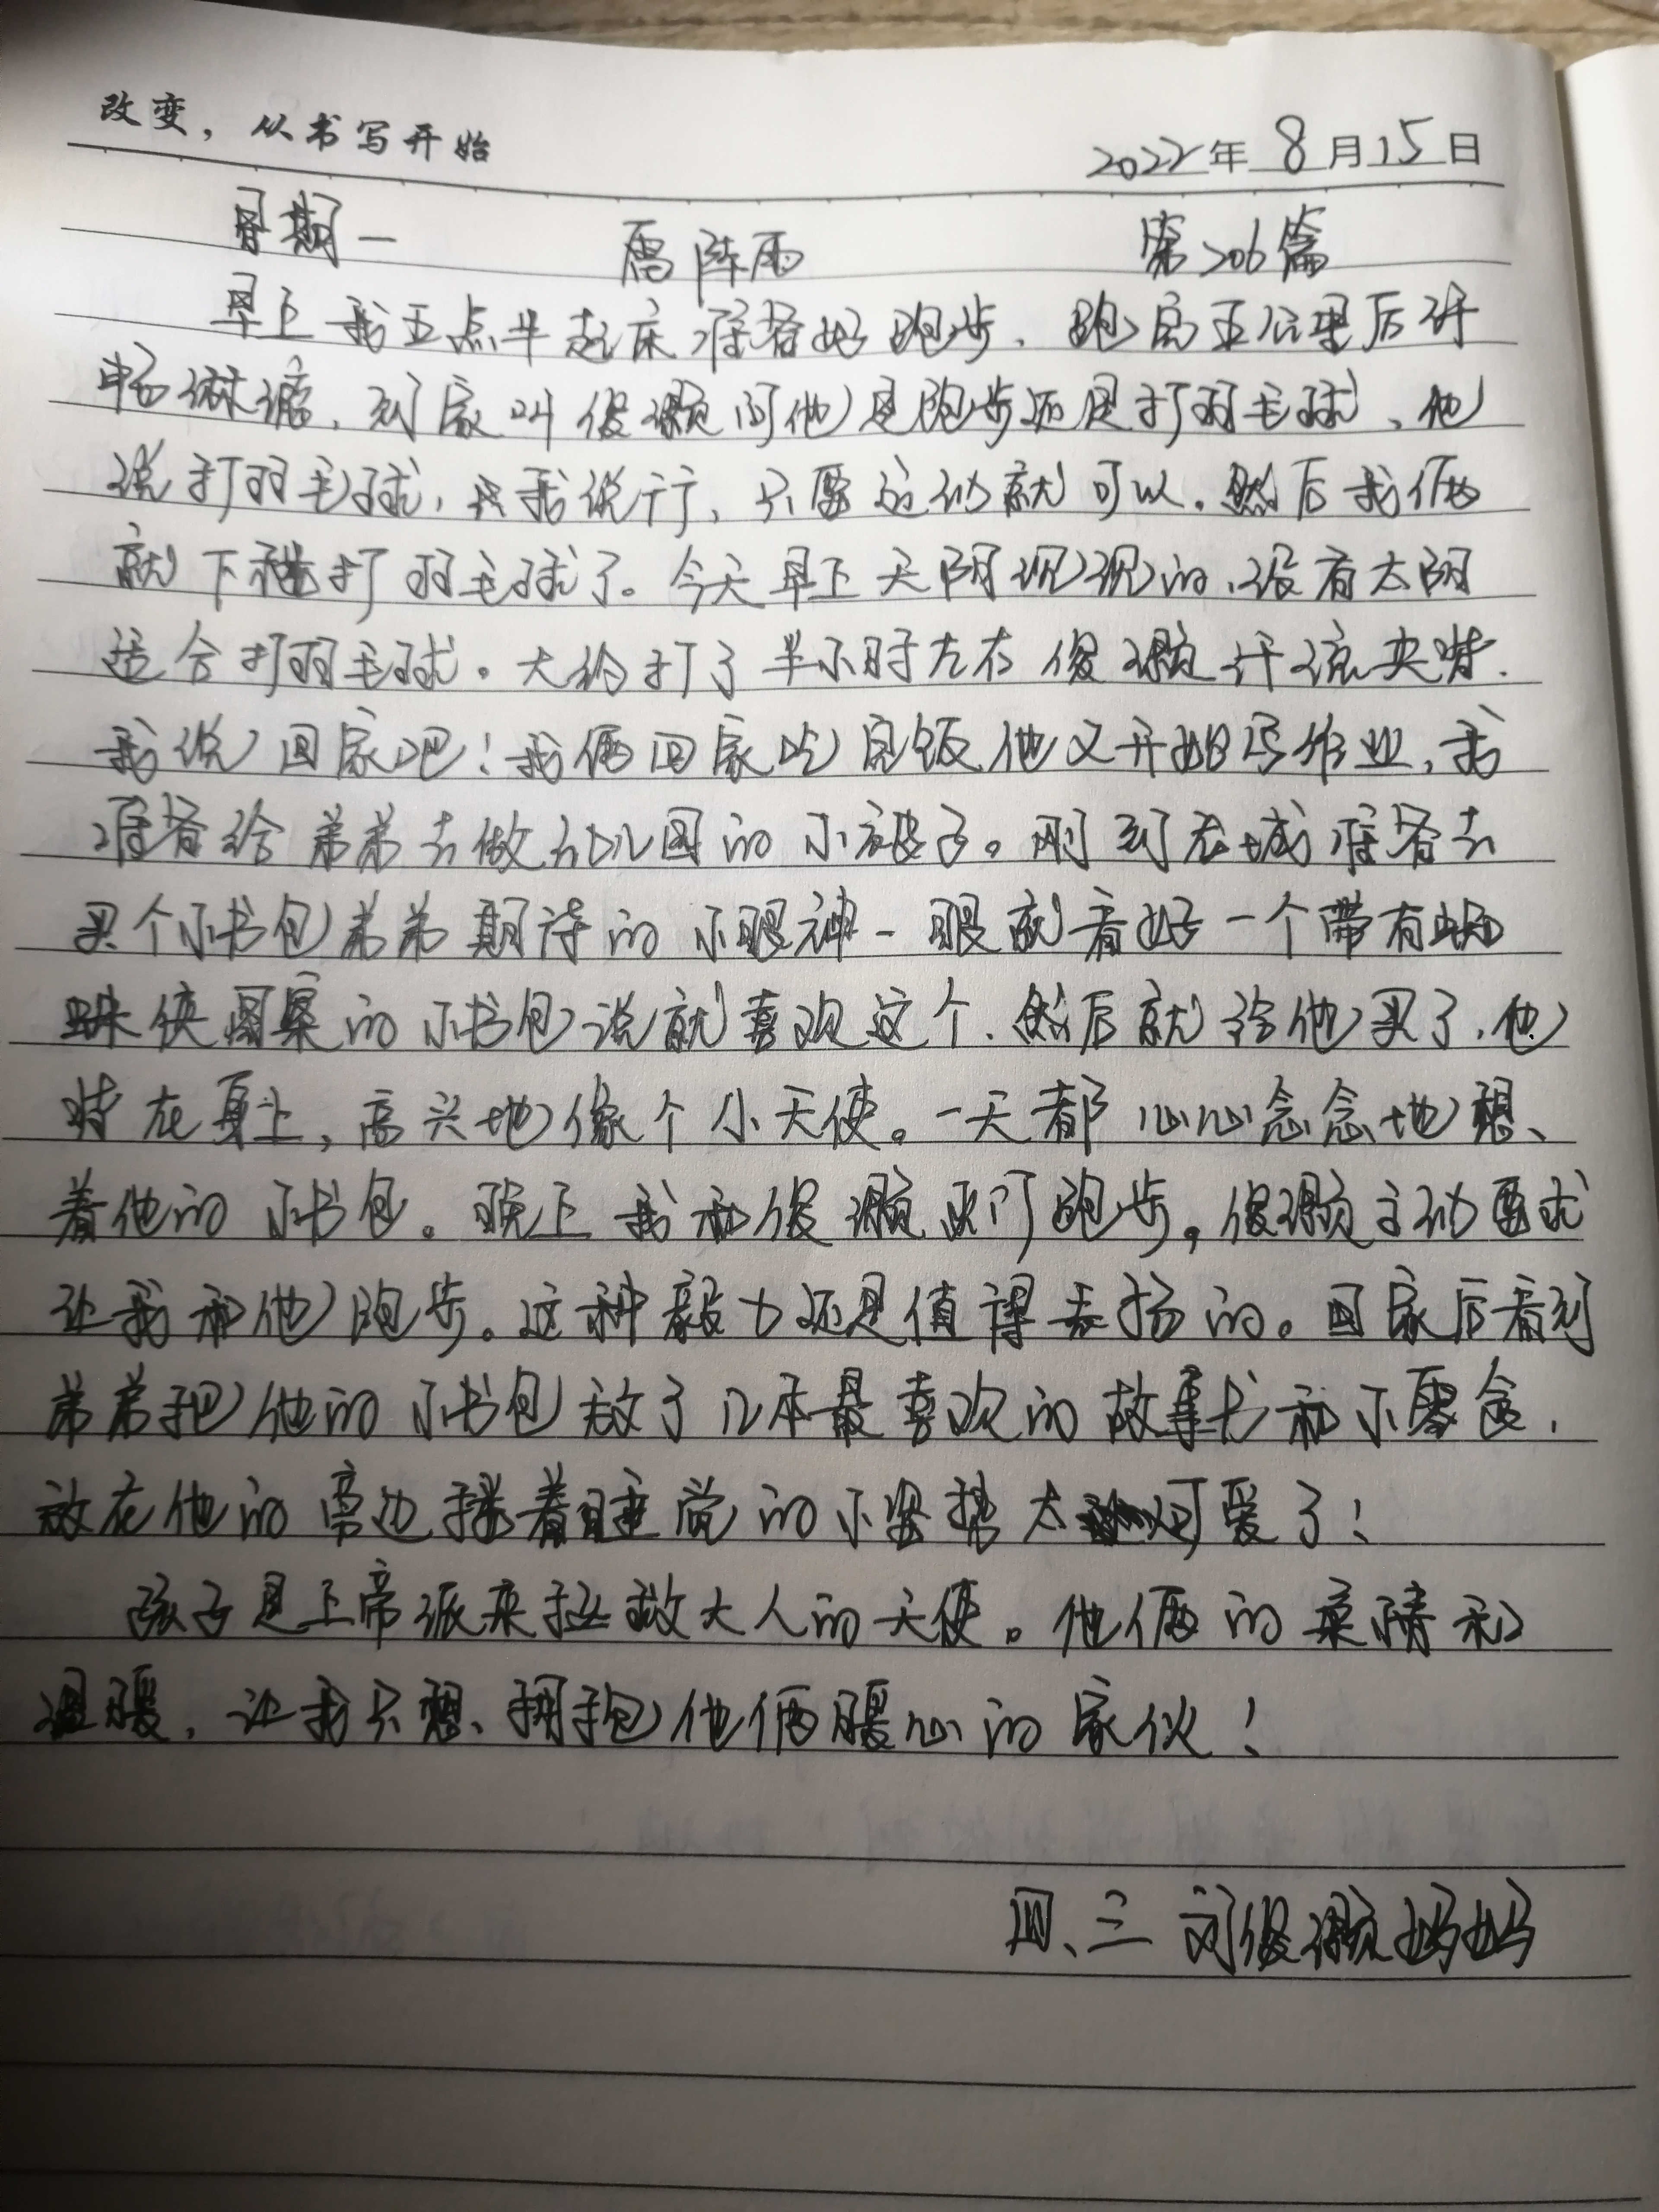 改变，从书写开始
2022年 8月15日
星期一 雷阵雨 第206篇
早上我五点半起床准备好跑步、跑完五公里后汗
畅淋漓，到家叫俊灏问他是跑步还是打羽毛球、他
说打羽毛球，我说行，只要运动就可以。然后我俩
就下楼打羽毛球了。今天早上天阴沉沉的，没有太阳
适合打羽毛球。大约打了半小时左右俊灏汗流夹背.
我说回家吧！我俩回家吃完饭他又开始写作业，我
准备给弟弟去做幼儿园的小被子。刚到衣城准备去
买个小书包弟弟期待的小眼神一眼就看好一个带有蜘
蛛侠图案的小书包说就喜欢这个、然后就给他买了，他
背在身上，高兴地像个小天使。一天都心心念念地想、
着他的小书包。晚上我和俊灏出门跑步。俊灏主动要求
让我和他跑步。这种毅力还是值得表扬的。回家后看到
弟弟把他的小书包放了几本最喜欢的故事书和小零食，
放在他的旁边搂着睡觉的小姿势太可爱了！
孩子是上帝派来拯救大人的天使。他俩的亲情和
温暖，让我只想、拥抱他俩暖心的家伙！
四、三 刘俊灏妈妈